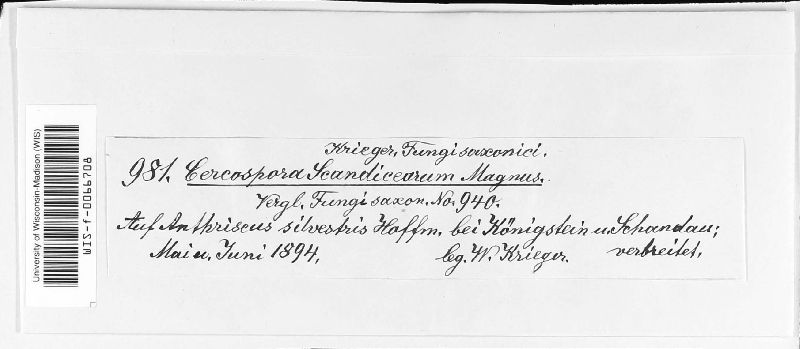 Krieger, Fungi saxonici.
981. Cercospora Scandicearum Magnus.
Vergl. Fungi saxon. No. 940.
Auf Anthriscus silvestris Hoffm. bei Königstein u. Schandau;
Mai u. Juni 1894. leg. W. Krieger. verbreitet.
University of Wisconsin-Madison (WIS)
WIS-f-0066708